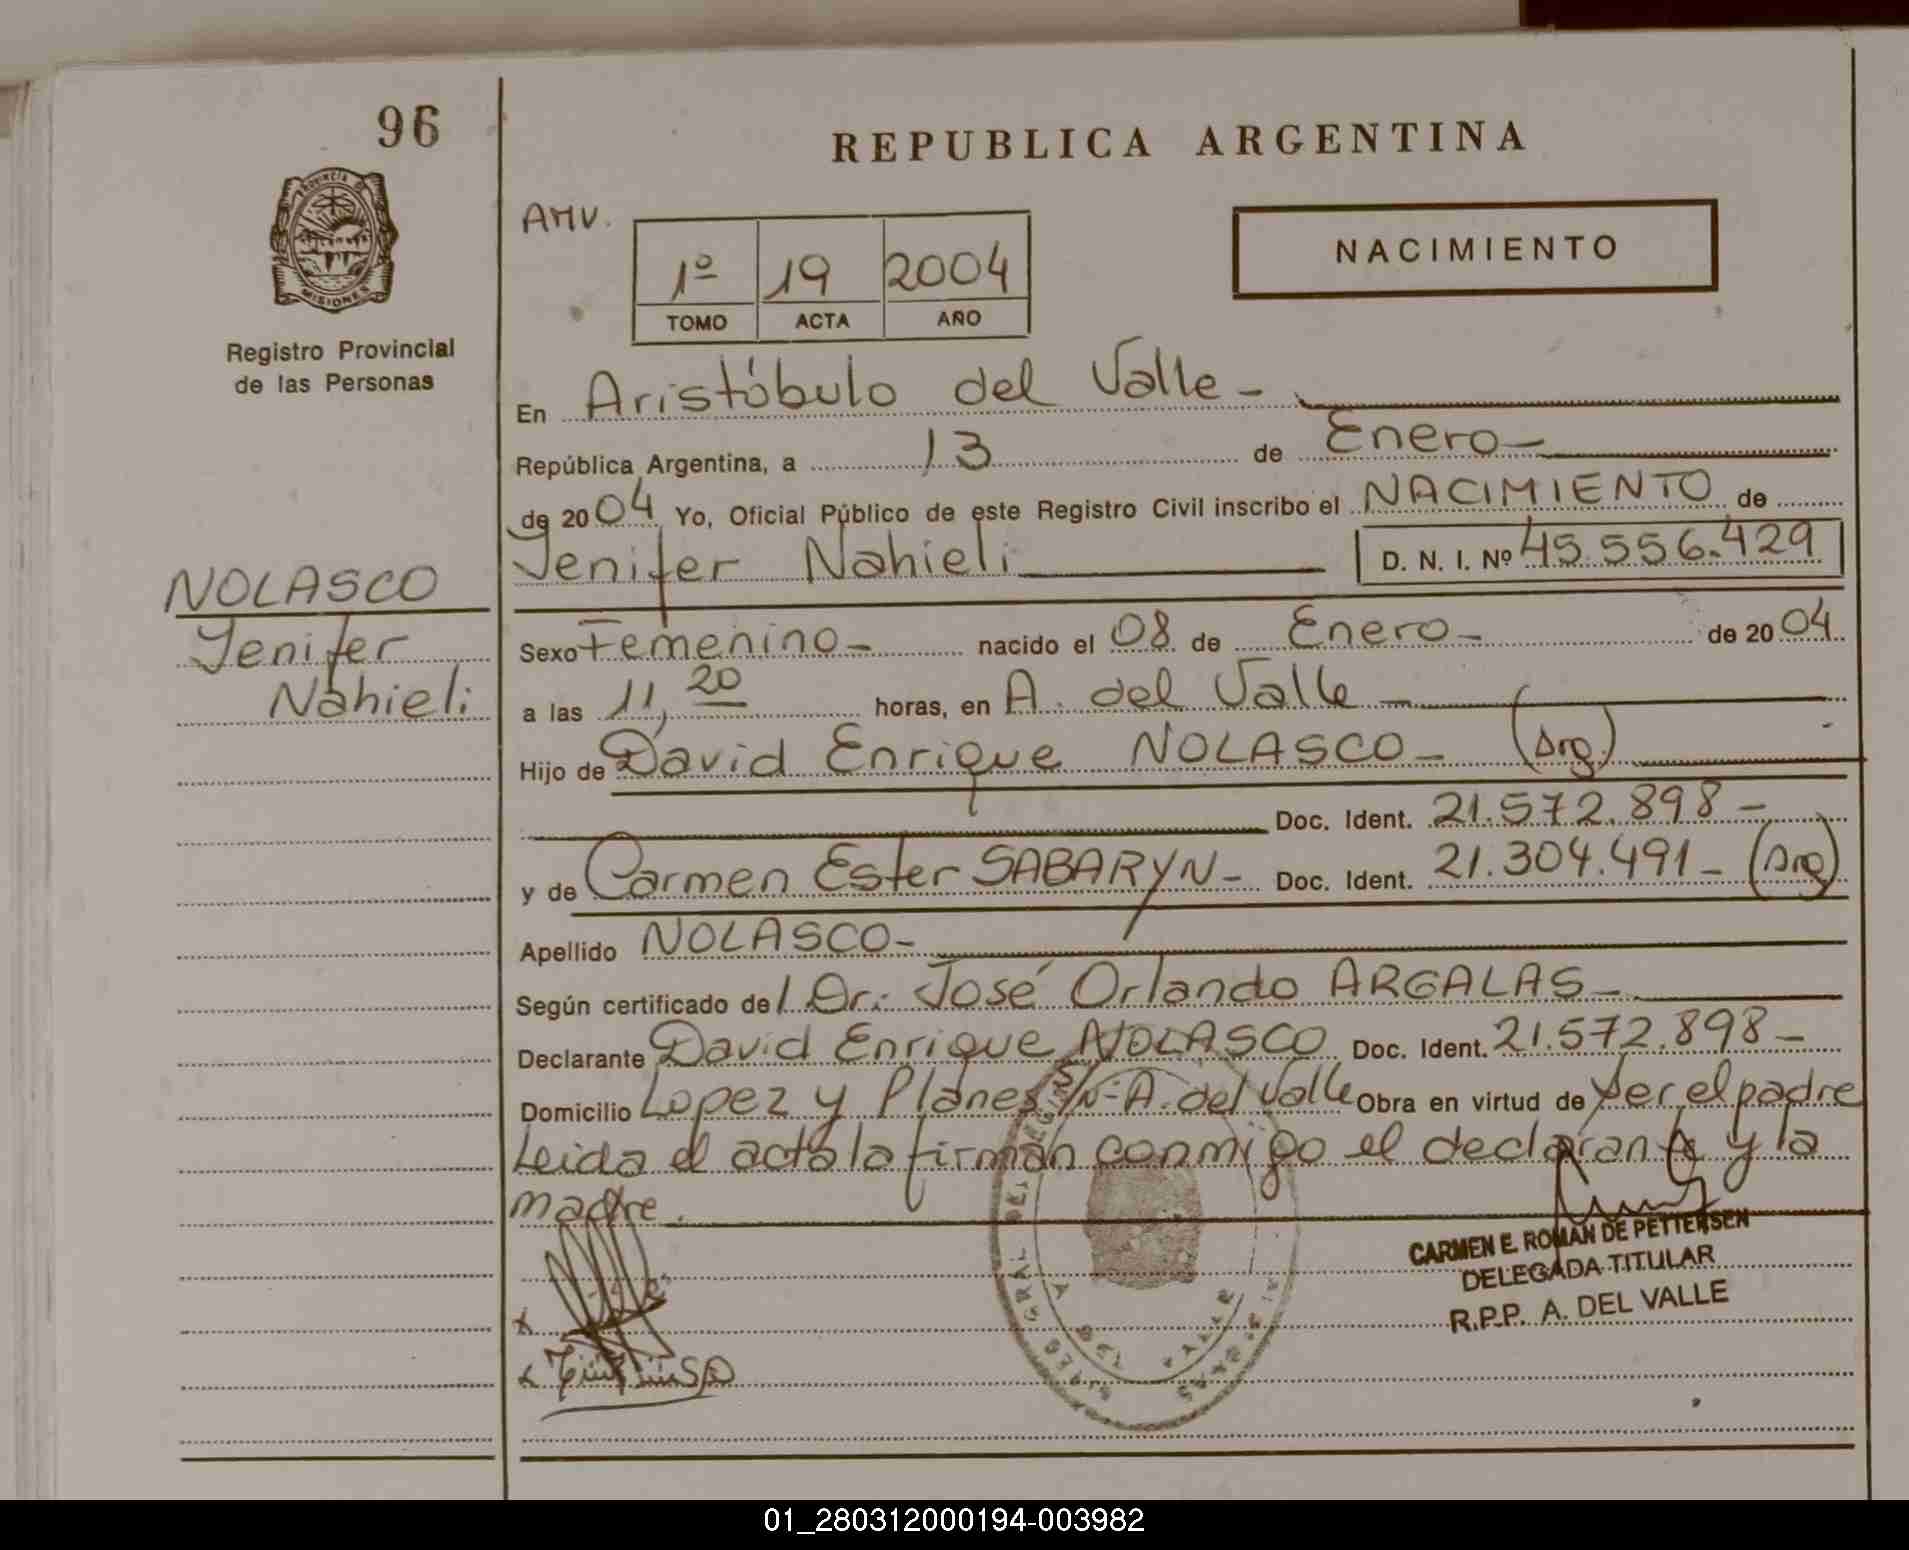 96
REPUBLICA ARGENTINA
PROVINCIA DE
MISIONES
Registro Provincial
de las Personas
AMV.
1º 19 2004
TOMO ACTA AÑO
NACIMIENTO
En Aristóbulo del Valle -
República Argentina, a 13 de Enero -
de 2004 Yo, Oficial Público de este Registro Civil inscribo el NACIMIENTO de
Yenifer Nahieli D. N. I. Nº 45.556.429
NOLASCO
Yenifer
Nahieli
Sexo Femenino - nacido el 08 de Enero - de 2004
a las 11,20 horas, en A. del Valle -
Hijo de David Enrique NOLASCO - (Arg.)
Doc. Ident. 21.572.898 -
y de Carmen Ester SABARYN - Doc. Ident. 21.304.491 - (Arg)
Apellido NOLASCO -
Según certificado del Dr.: José Orlando ARGALAS -
Declarante David Enrique NOLASCO Doc. Ident. 21.572.898 -
Domicilio Lopez y Planes S/N - A. del Valle Obra en virtud de ser el padre
Leida el acta la firman conmigo el declarante y la
madre.
CARMEN E. ROMAN DE PETTERSEN
DELEGADA TITULAR
R.P.P. A. DEL VALLE
A DEL VALLE
01_280312000194-003982